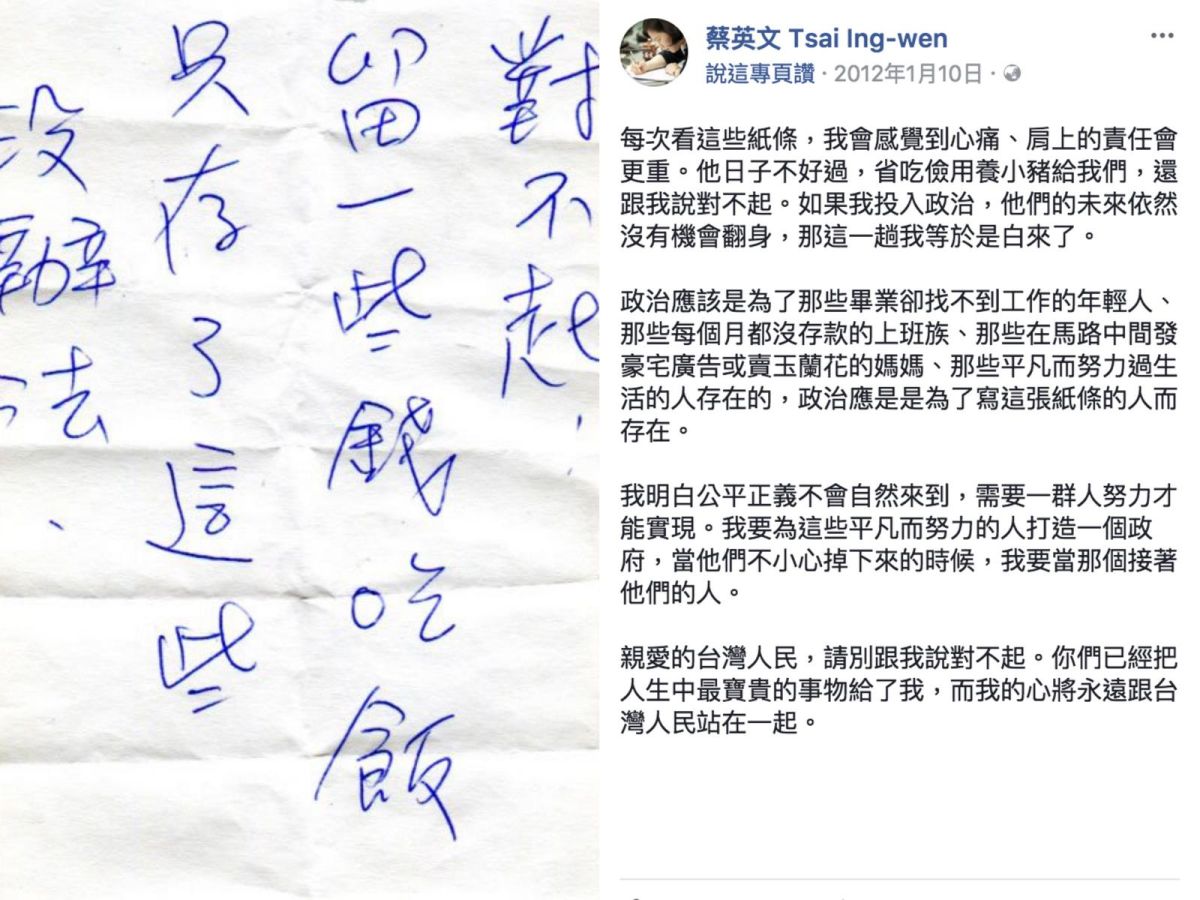 對不起，
留一些錢吃飯
只存了這些
沒辦法、
蔡英文 Tsai Ing-wen
說這專頁讚 · 2012年1月10日 ·
每次看這些紙條，我會感覺到心痛、肩上的責任會
更重。他日子不好過，省吃儉用養小豬給我們，還
跟我說對不起。如果我投入政治，他們的未來依然
沒有機會翻身，那這一趟我等於是白來了。
政治應該是為了那些畢業卻找不到工作的年輕人、
那些每個月都沒存款的上班族、那些在馬路中間發
豪宅廣告或賣玉蘭花的媽媽、那些平凡而努力過生
活的人存在的，政治應是是為了寫這張紙條的人而
存在。
我明白公平正義不會自然來到，需要一群人努力才
能實現。我要為這些平凡而努力的人打造一個政
府，當他們不小心掉下來的時候，我要當那個接著
他們的人。
親愛的台灣人民，請別跟我說對不起。你們已經把
人生中最寶貴的事物給了我，而我的心將永遠跟台
灣人民站在一起。